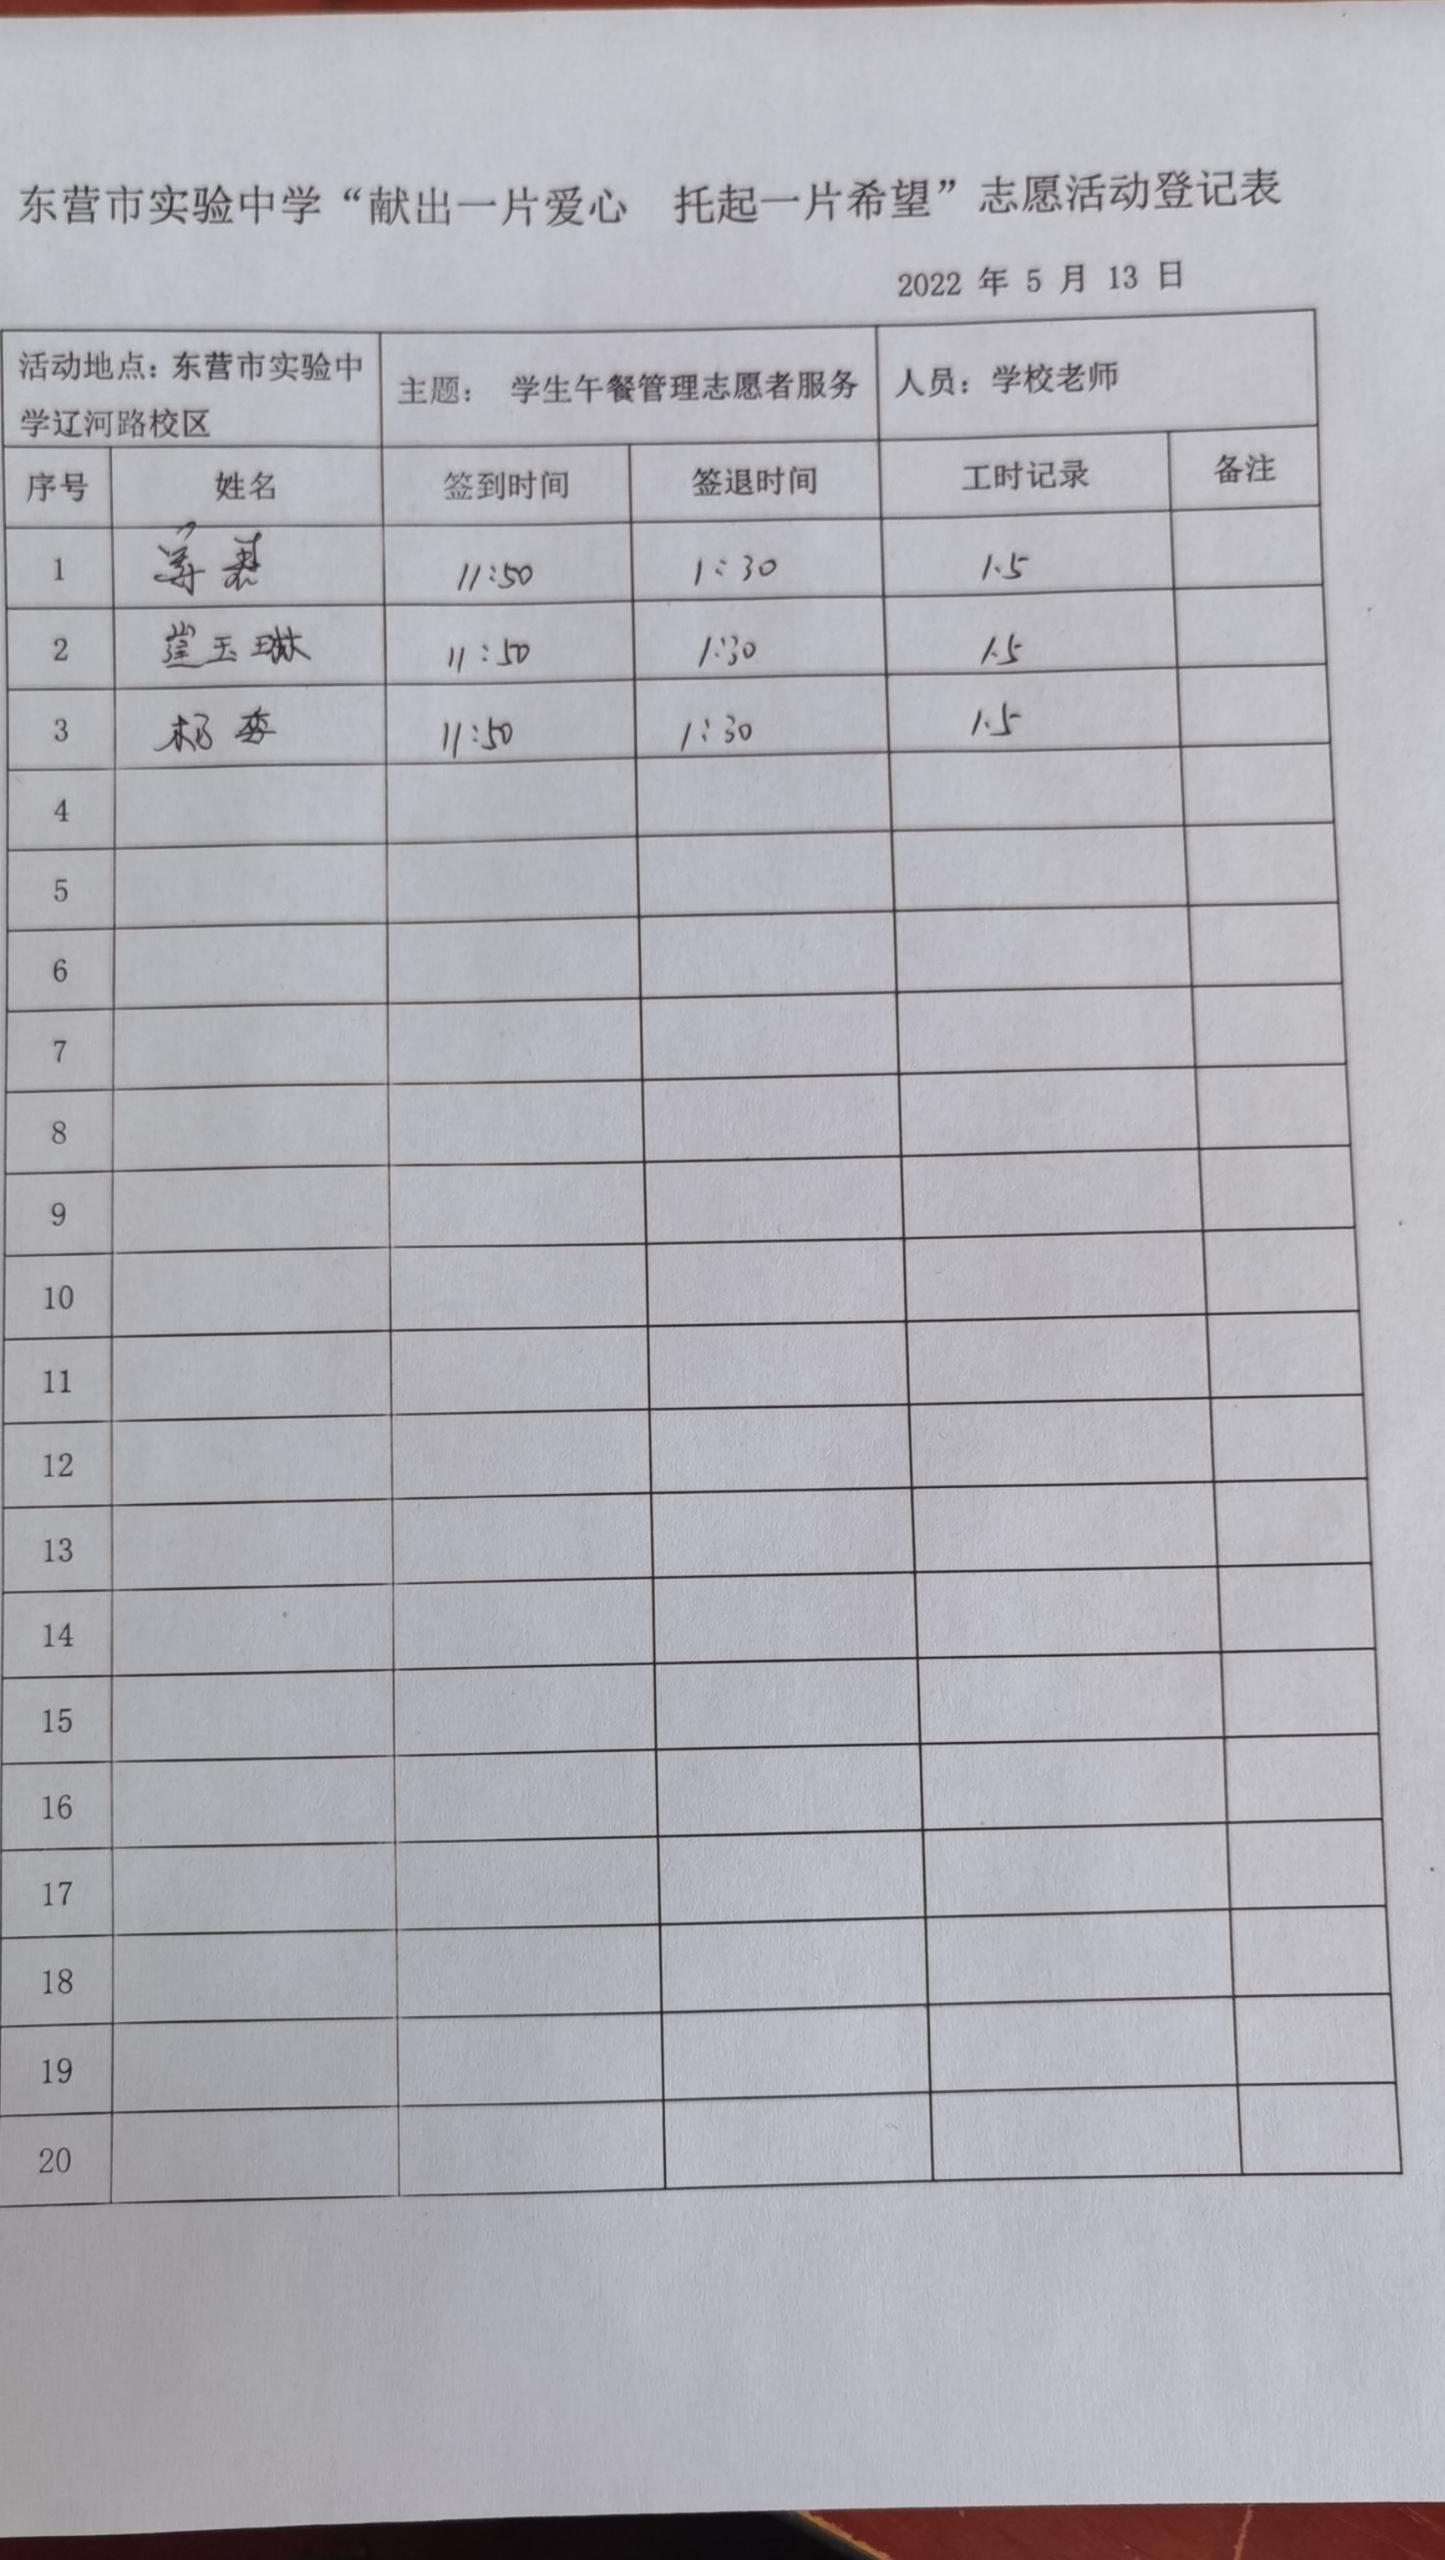 东营市实验中学“献出一片爱心　托起一片希望”志愿活动登记表
2022 年 5 月 13 日
活动地点：东营市实验中
学辽河路校区
主题： 学生午餐管理志愿者服务
人员：学校老师
序号 姓名 签到时间 签退时间 工时记录 备注
1 11:50 1:30 1.5
2 崔玉琳 11:50 1:30 1.5
3 杨 11:50 1:30 1.5
4
5
6
7
8
9
10
11
12
13
14
15
16
17
18
19
20